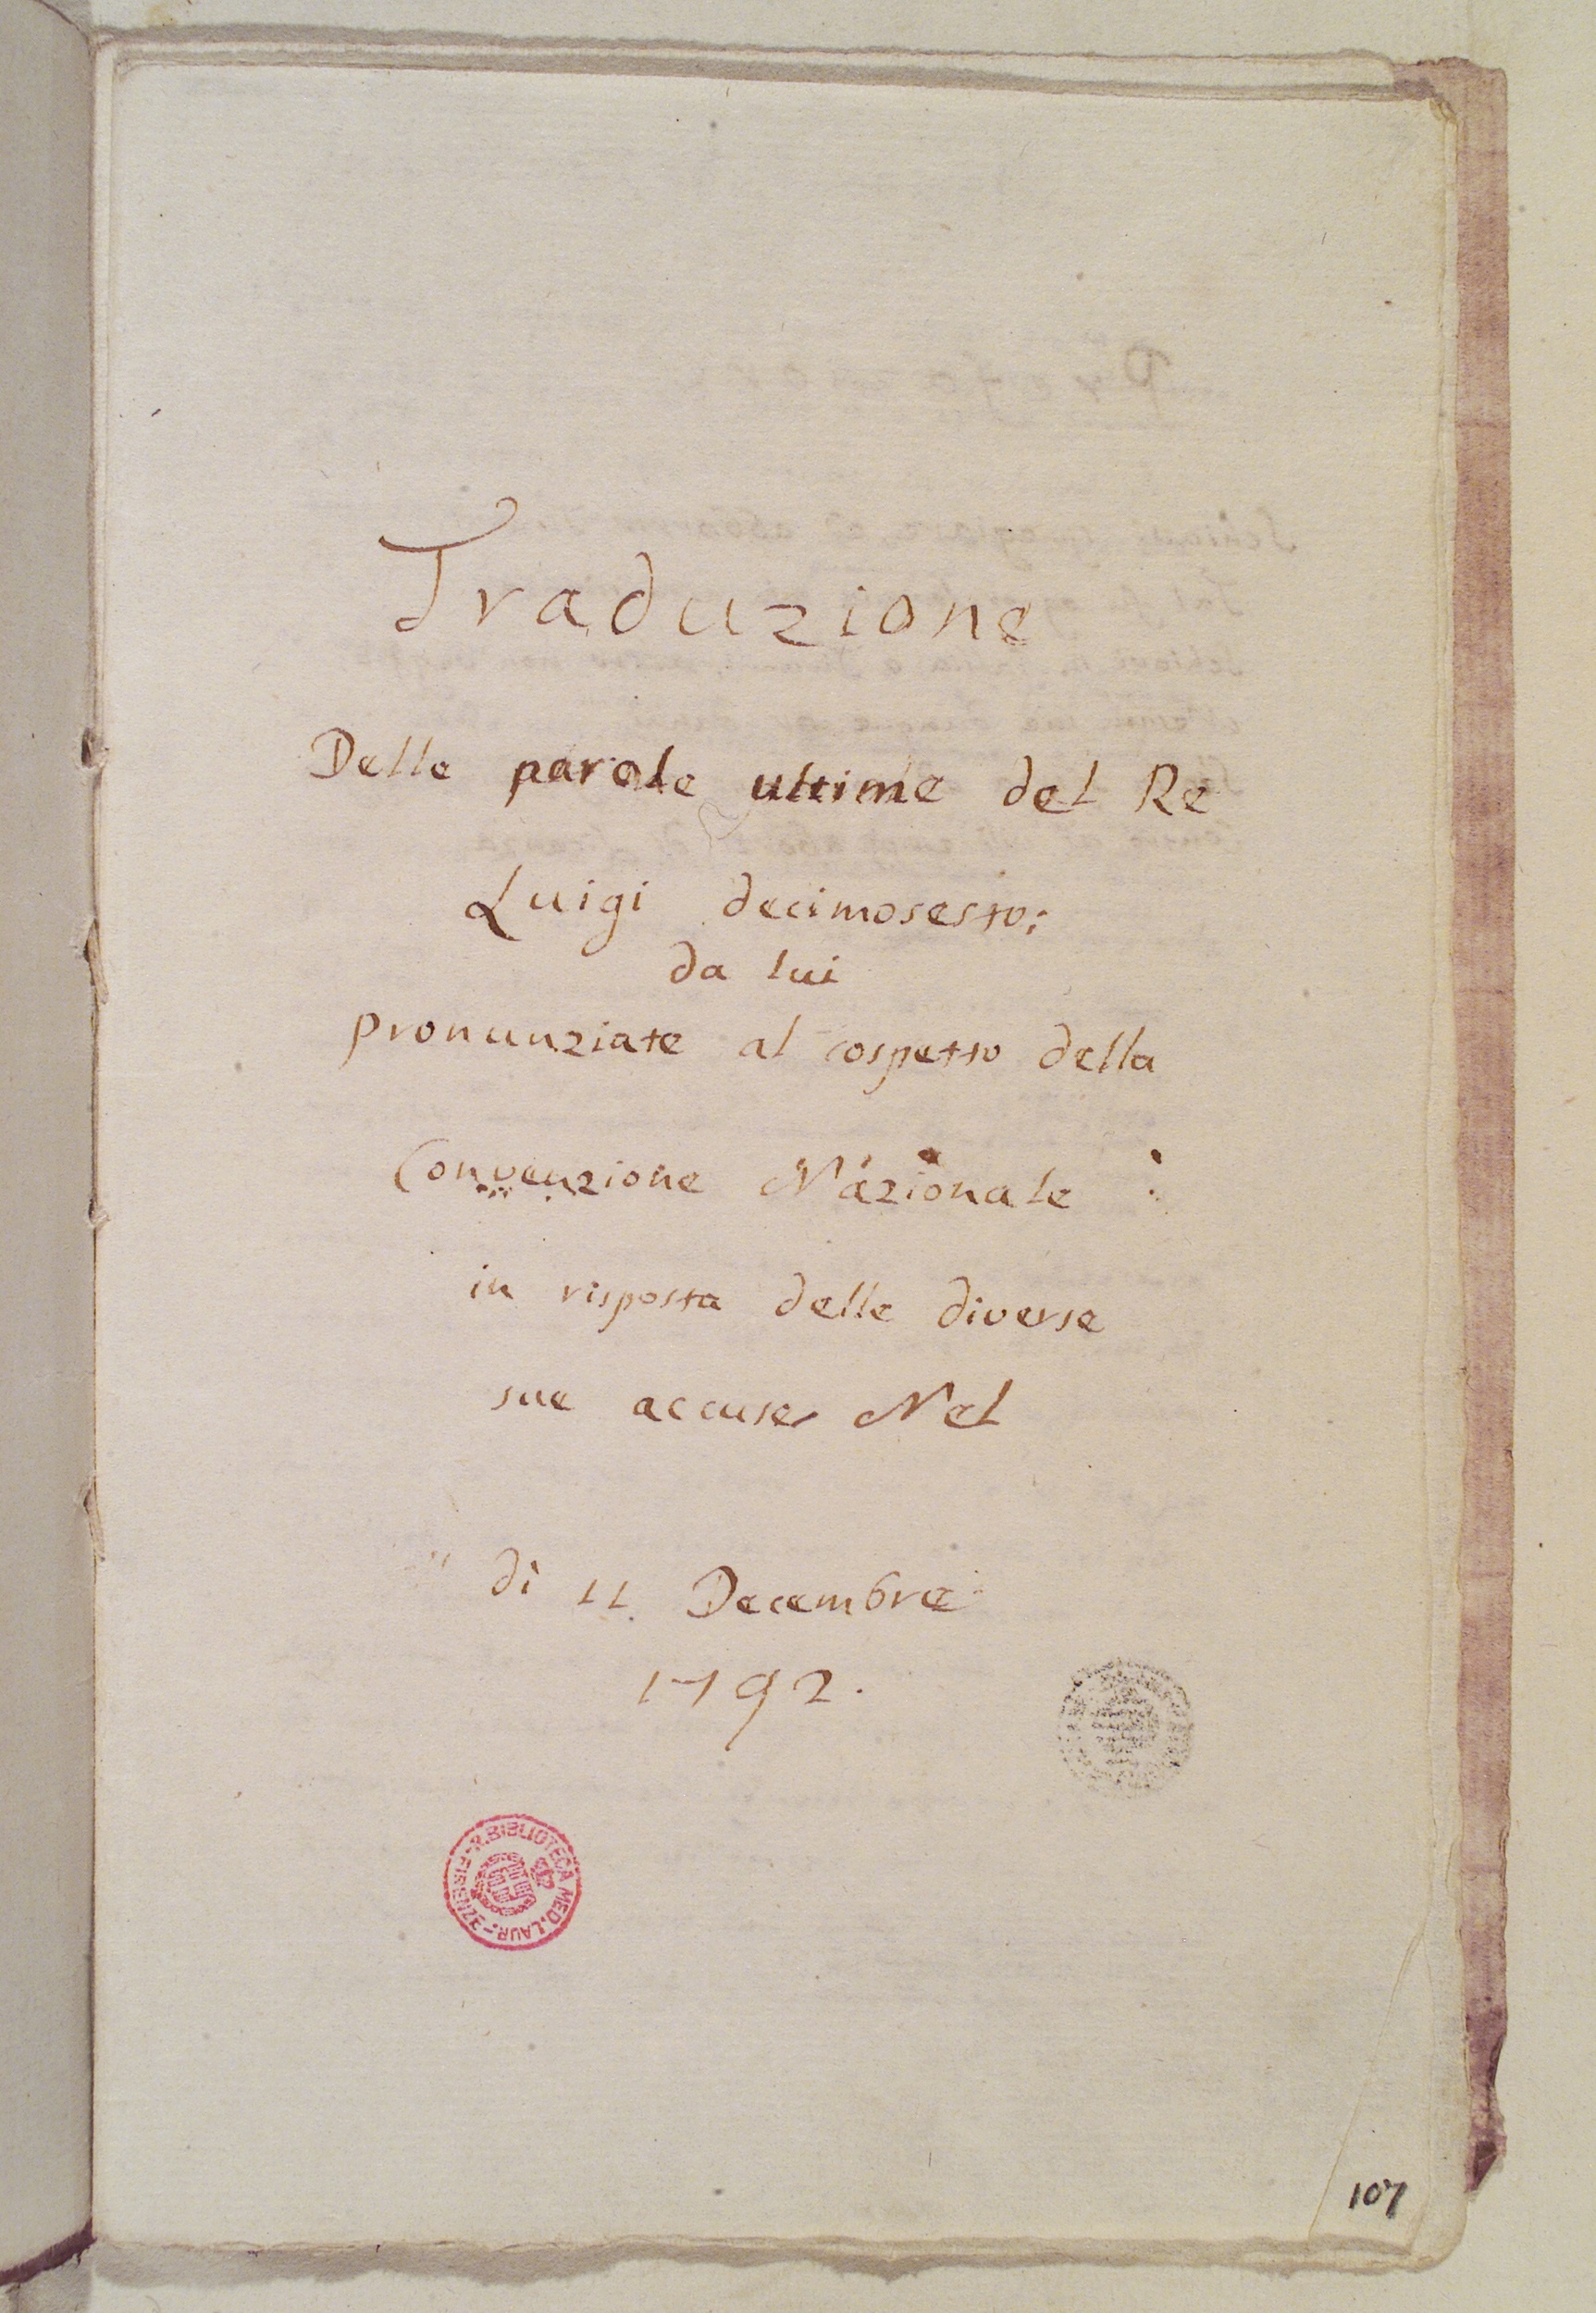 Traduzione
Delle parole ultime del Re
Luigi decimosesto;
da lui
pronunziate al cospetto della
Convenzione Nazionale :
in risposta delle diverse
sue accuse Nel
dì 11 Decembre
1792.
R. BIBLIOTECA MED. LAUR. - FIRENZE -
107